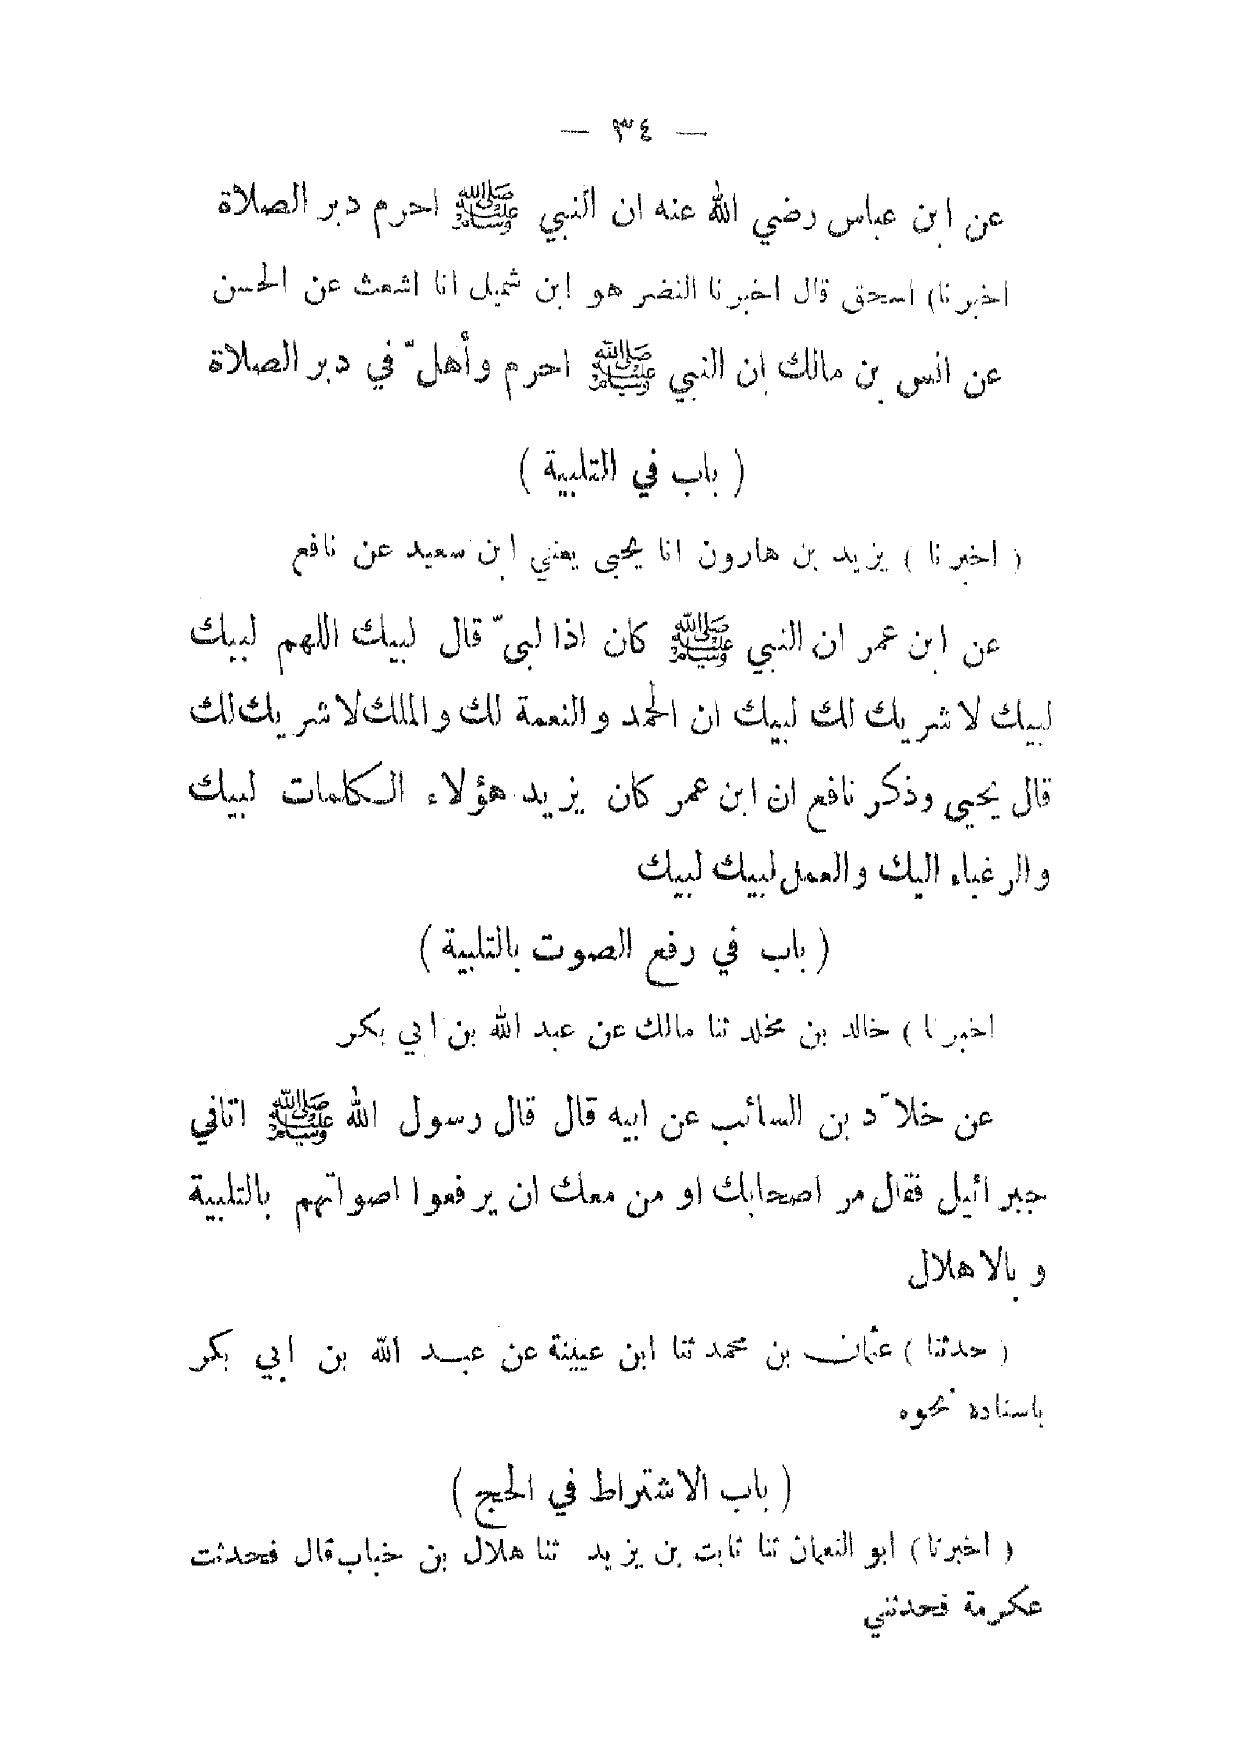 — ٣٤ —
عن ابن عباس رضي الله عنه ان النبي ﷺ احرم دبر الصلاة
اخبرنا) اسحق قال اخبرنا النضر هو ابن شميل انا اشعث عن الحسن
عن انس بن مالك ان النبي ﷺ احرم وأهلّ في دبر الصلاة
( باب في التلبية )
( اخبرنا ) يزيد بن هارون انا يحيى يعني ابن سعيد عن نافع
عن ابن عمر ان النبي ﷺ كان اذا لبىّ قال لبيك اللهم لبيك
لبيك لا شريك لك لبيك ان الحمد والنعمة لك والملك لا شريك لك
قال يحيى وذكر نافع ان ابن عمر كان يزيد هؤلاء الكلمات لبيك
والرغباء اليك والعمل لبيك لبيك
( باب في رفع الصوت بالتلبية )
اخبرنا ) خالد بن مخلد ثنا مالك عن عبد الله بن ابي بكر
عن خلاّد بن السائب عن ابيه قال قال رسول الله ﷺ اتاني
جبرائيل فقال مر اصحابك او من معك ان يرفعوا اصواتهم بالتلبية
و بالاهلال
( حدثنا ) عثمان بن محمد ثنا ابن عيينة عن عبد الله بن ابي بكر
باسناده نحوه
( باب الاشتراط في الحج )
( اخبرنا ) ابو النعمان ثنا ثابت بن يزيد ثنا هلال بن خباب قال فحدثت
عكرمة فحدثني